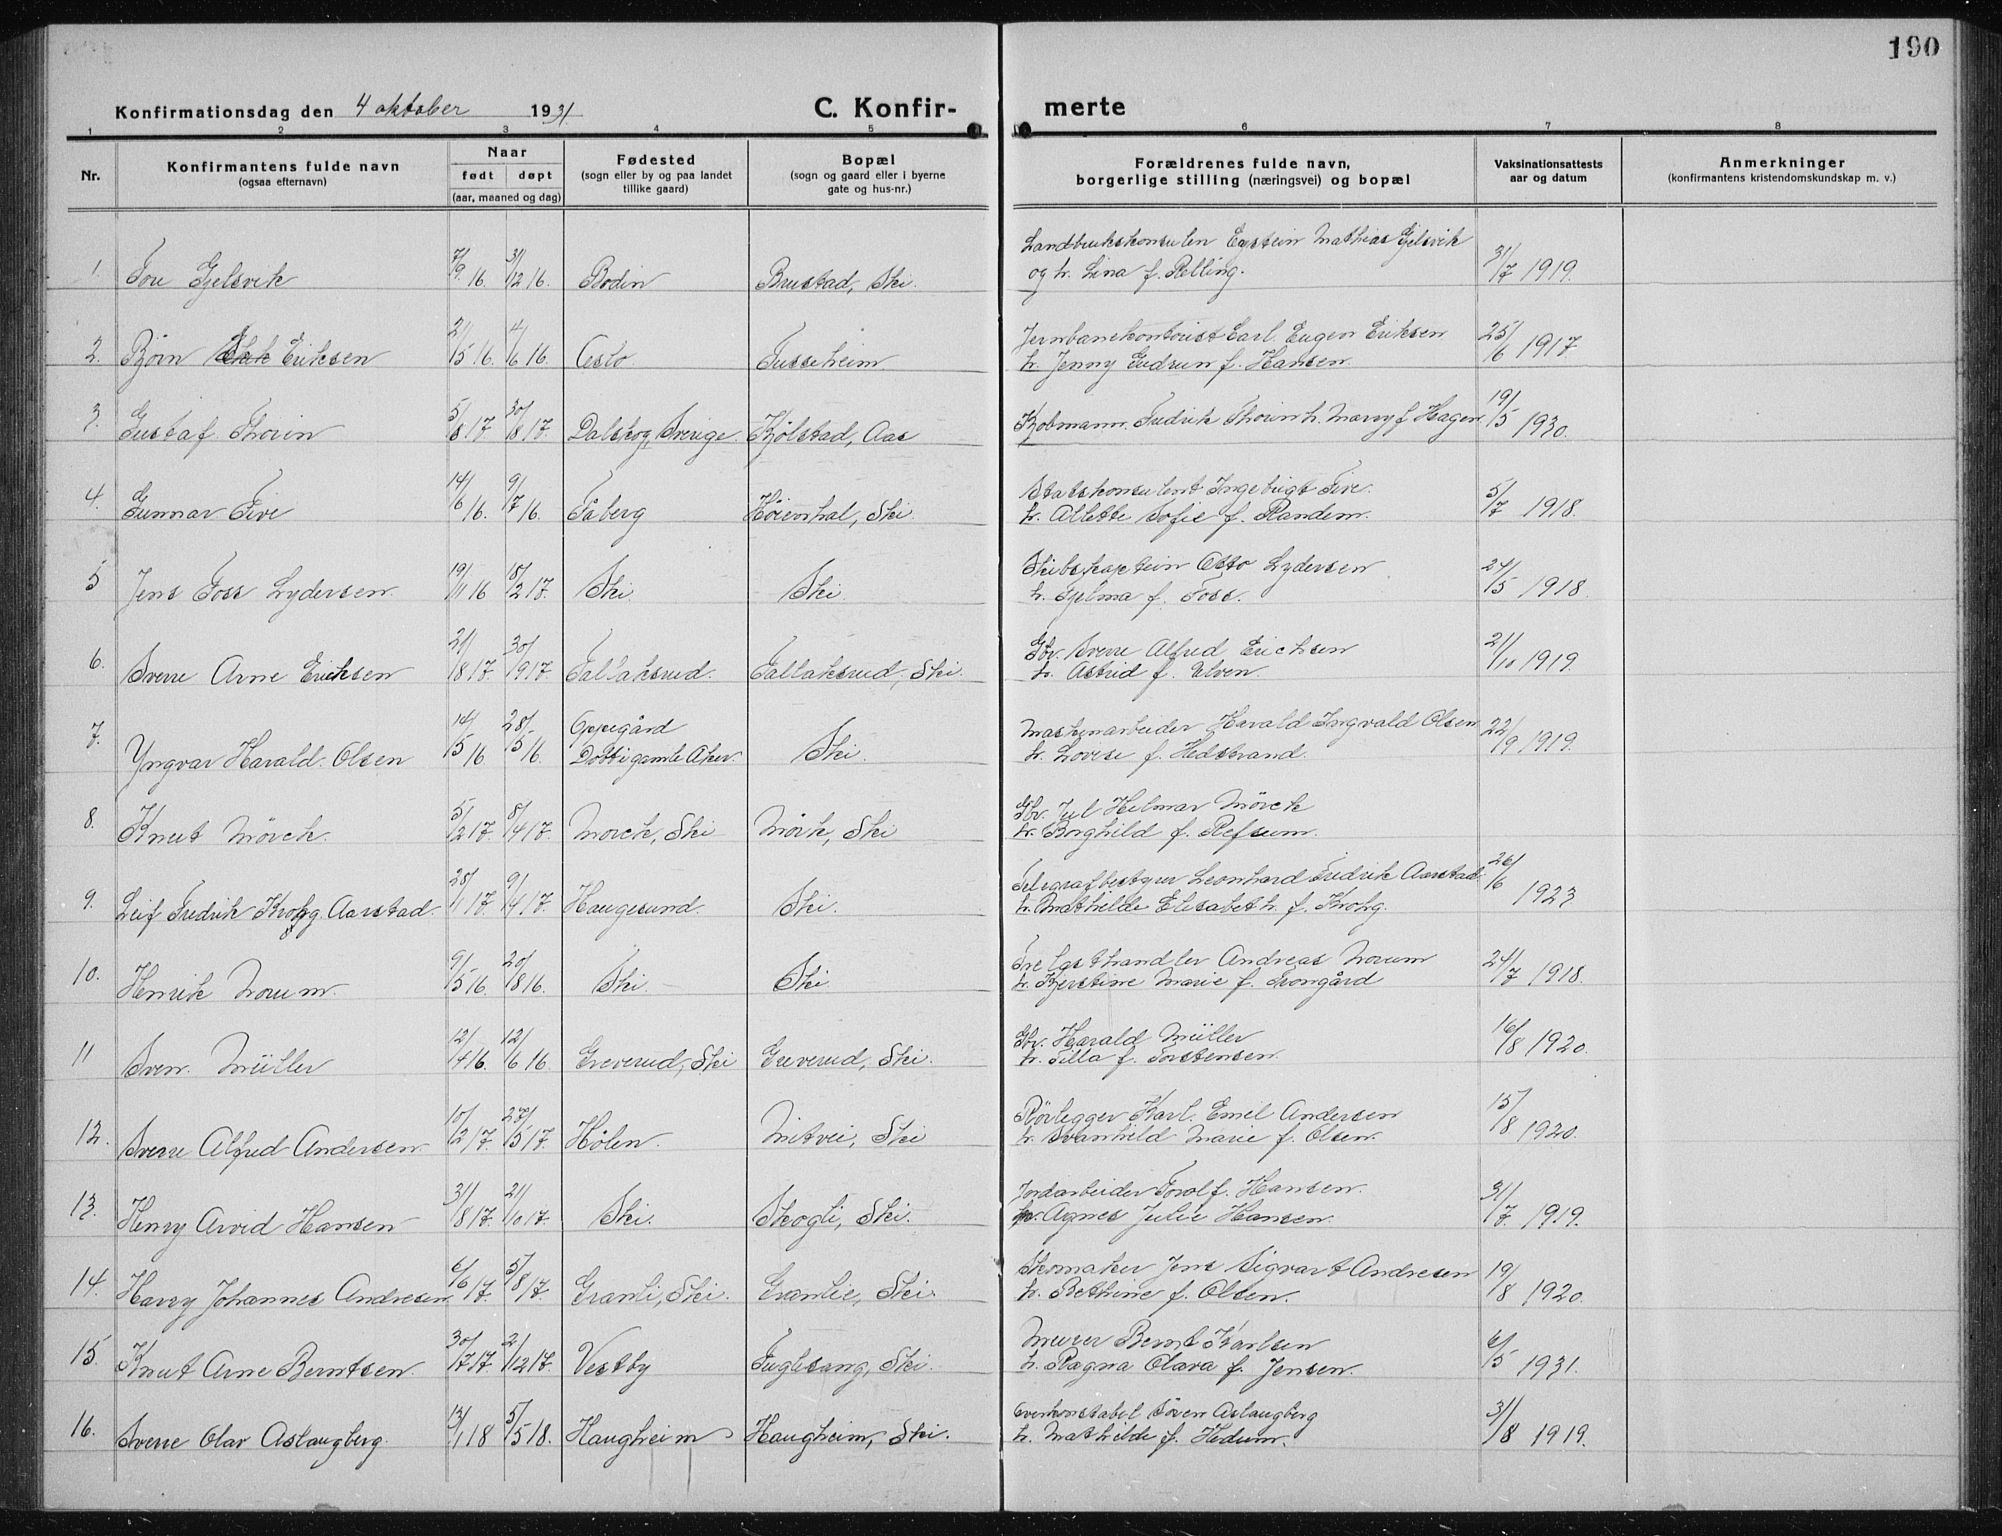 190
Konfirmationsdag den 4 oktober 1931
C. Konfir- merte
1 2 3 4 5 6 7 8
Nr.
Konfirmantens fulde navn
(ogsaa efternavn)
Naar
født døpt
(aar, maaned og dag)
Fødested
(sogn eller by og paa landet
tillike gaard)
Bopæl
(sogn og gaard eller i byerne
gate og hus-nr.)
Forældrenes fulde navn,
borgerlige stilling (næringsvei) og bopæl
Vaksinationsattests
aar og datum
Anmerkninger
(konfirmantens kristendomskundskap m. v.)
Landbrukskonsulen Eystein Mathias Gjelsvik
1. Tore Gjelsvik 7/9 16. 31/12 16. Bodin Brustad, Ski. og h. Lina f. Relling. 31/7 1919.
Jernbanekontorist Carl Eugen Eriksen
2. Bjørn Eriksen 21/5 16. 4/6 16 Oslo Tusseheim h. Jenny Gudrun f. Hansen. 25/6 1917
3. Gustaf Thorin 5/8 17 30/8 17. Dalskog, Sverige. Kjølstad, Aas Kjøbmann Fredrik Thorin h. Marry f. Hagen 19/5 1930.
Statskonsulent Ingebrigt Five.
4. Gunnar Five 14/6 16. 9/7 16. Fåberg Høienhal, Ski. h. Allette Sofie f. Randem. 5/7 1918.
Skibskaptein Otto Lydersen
5 Jens Foss Lydersen. 19/11 16 18/2 17. Ski Ski h. Hjelma f. Foss. 24/5 1918.
Gbr. Sverre Alfred Erichsen
6. Sverre Arne Eriksen 21/8 17. 30/9 17. Fallaksrud. Fallaksrud, Ski. h. Astrid f. Elven. 21/10 1919.
Oppegård Maskinarbeider Harald Ingvald Olsen
7. Yngvar Harald. Olsen 14/5 16 28/5 16. Døbt i gamle Aker. Ski. h. Lovise f. Hedstrand. 22/9 1919.
Gbr. Jul Hilmar Mörck
8. Knut Mörck. 5/2 17. 8/4 17. Morck, Ski Mörk, Ski h. Borghild f. Refsum.
Telegrafbestyrer Leonhard Fredrik Aarstad
9. Leif Fredrik Krohg Aarstad. 28/1 17. 9/4 17. Haugesund. Ski. h. Mathilde Elisabeth. f. Krohg. 26/6 1923
Trelasthandler Andreas Norum
10. Henrik Norum. 9/5 16. 20/8 16. Ski. Ski h. Kjerstine Marie f. Trongård 24/7 1918.
Gbr. Harald Müller
11 Sven. Müller 12/4 16. 12/6 16 Greverud, Ski Greverud, Ski. h. Tilla f. Torstensen. 16/8 1920.
Rørlegger Karl. Emil Andersen
12. Sverre Alfred Andersen. 10/2 17. 27/5 17. Hølen. Mitvei, Ski h. Svanhild Marie f. Olsen. 15/8 1920.
Jordarbeider Torolf. Hansen.
13. Henry Arvid Hansen 31/8 17. 21/10 17. Ski. Skogli, Ski. h. Agnes Julie Hansen. 31/7 1919.
Skomaker Jens Sigvart Andresen
14. Harry Johannes Andresen 6/6 17. 5/8 17. Granli, Ski. Granlie, Ski. h. Bethine f. Olsen. 19/8 1920.
Murer Bernt Karlsen
15. Knut Arne Berntsen. 30/7 17. 2/12 17. Vestby Fuglesang, Ski. h. Ragna Olava f. Jensen. 6/5 1931.
Overkonstabel Sören Aslaugberg
16. Sverre Olav Aslaugberg. 13/1 18 5/5 18. Haugheim Haugheim, Ski. h. Mathilde f. Hedum. 31/8 1919.